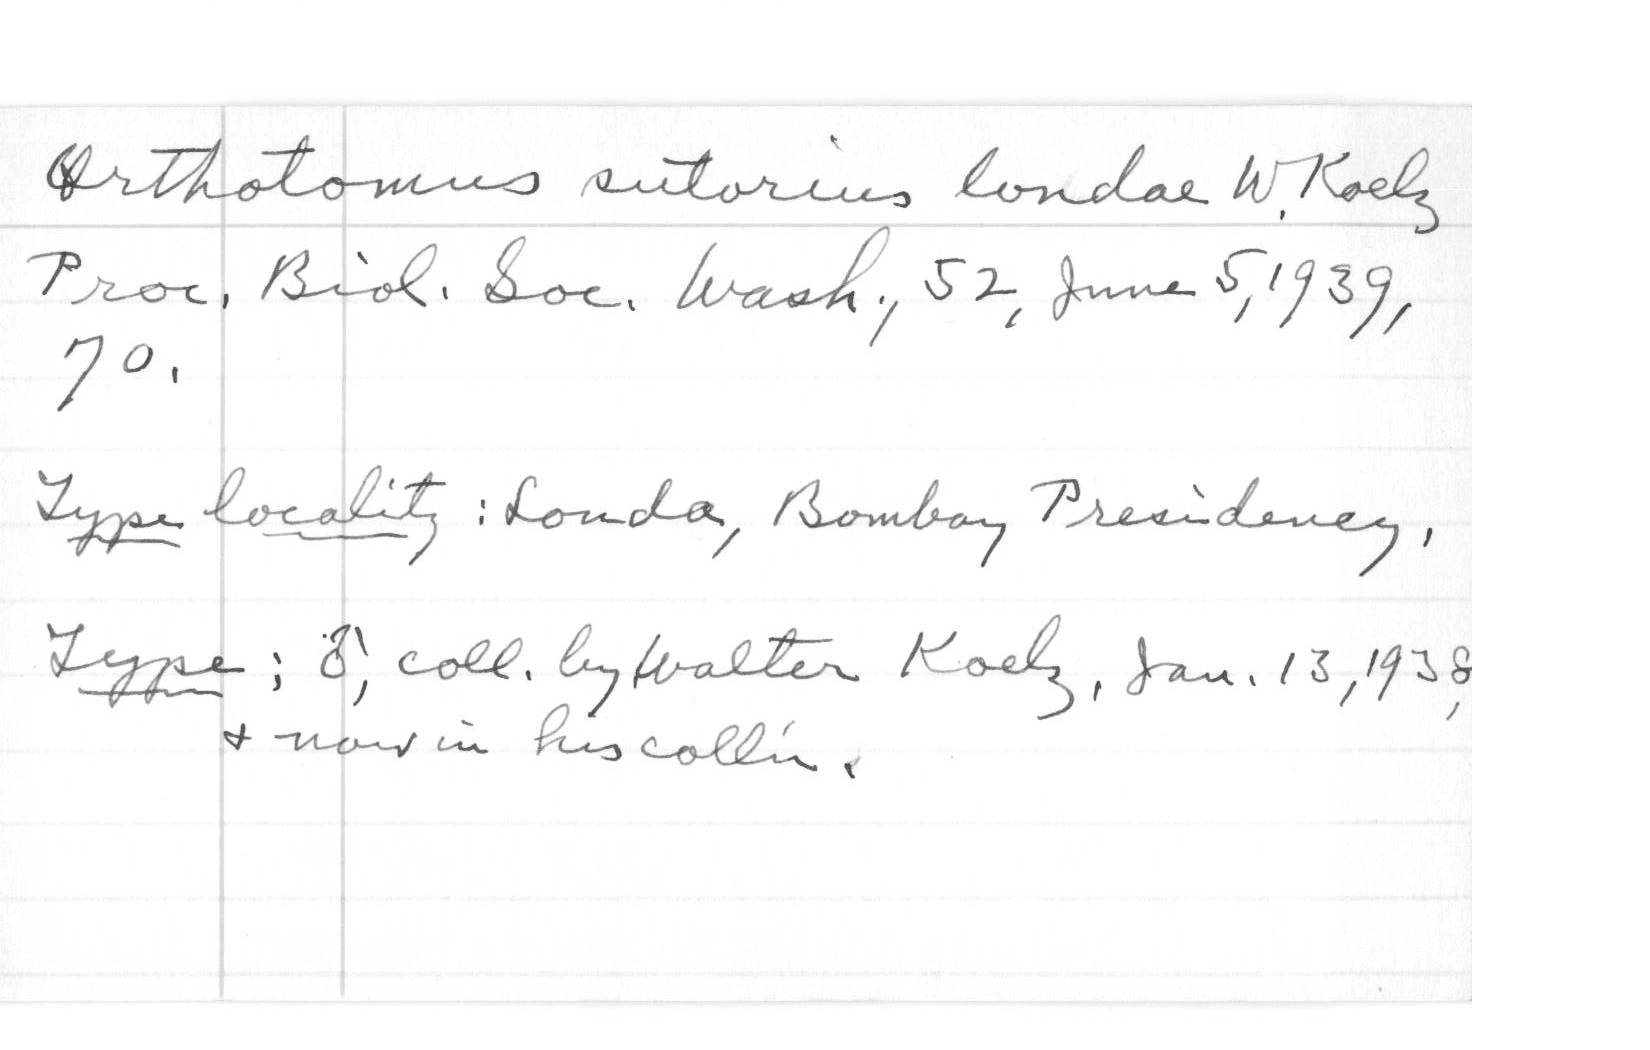 Orthotomus sutorius londae W. Koelz
Proc. Biol. Soc. Wash., 52, June 5, 1939,
70.
Type locality: Londa, Bombay Presidency.
Type; ♂, coll. by Walter Koelz, Jan. 13, 1938,
& now in his coll'n.